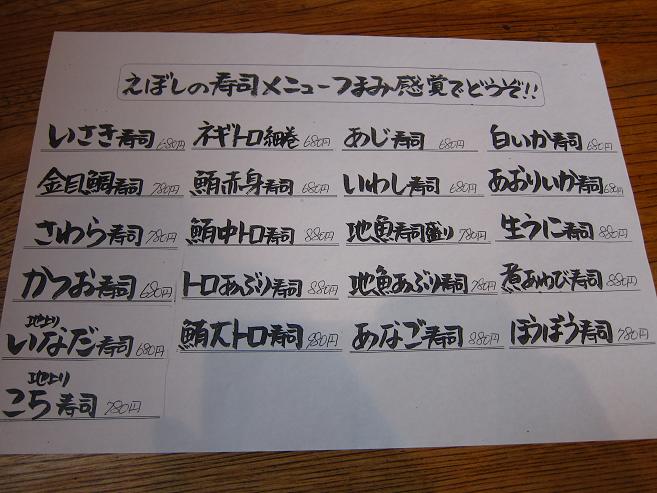 えぼしの寿司メニューつまみ感覚でどうぞ!!
いさき寿司 680円 ネギトロ細巻 680円 あじ寿司 680円 白いか寿司 680円
金目鯛寿司 780円 鮪赤身寿司 680円 いわし寿司 680円 あおりいか寿司 680円
さわら寿司 780円 鮪中トロ寿司 880円 地魚寿司盛り 780円 生うに寿司 880円
かつお寿司 680円 トロあぶり寿司 880円 地魚あぶり寿司 780円 煮あわび寿司 880円
地上り
いなだ寿司 680円 鮪大トロ寿司 980円 あなご寿司 880円 ほうぼう寿司 780円
地上り
こち寿司 780円